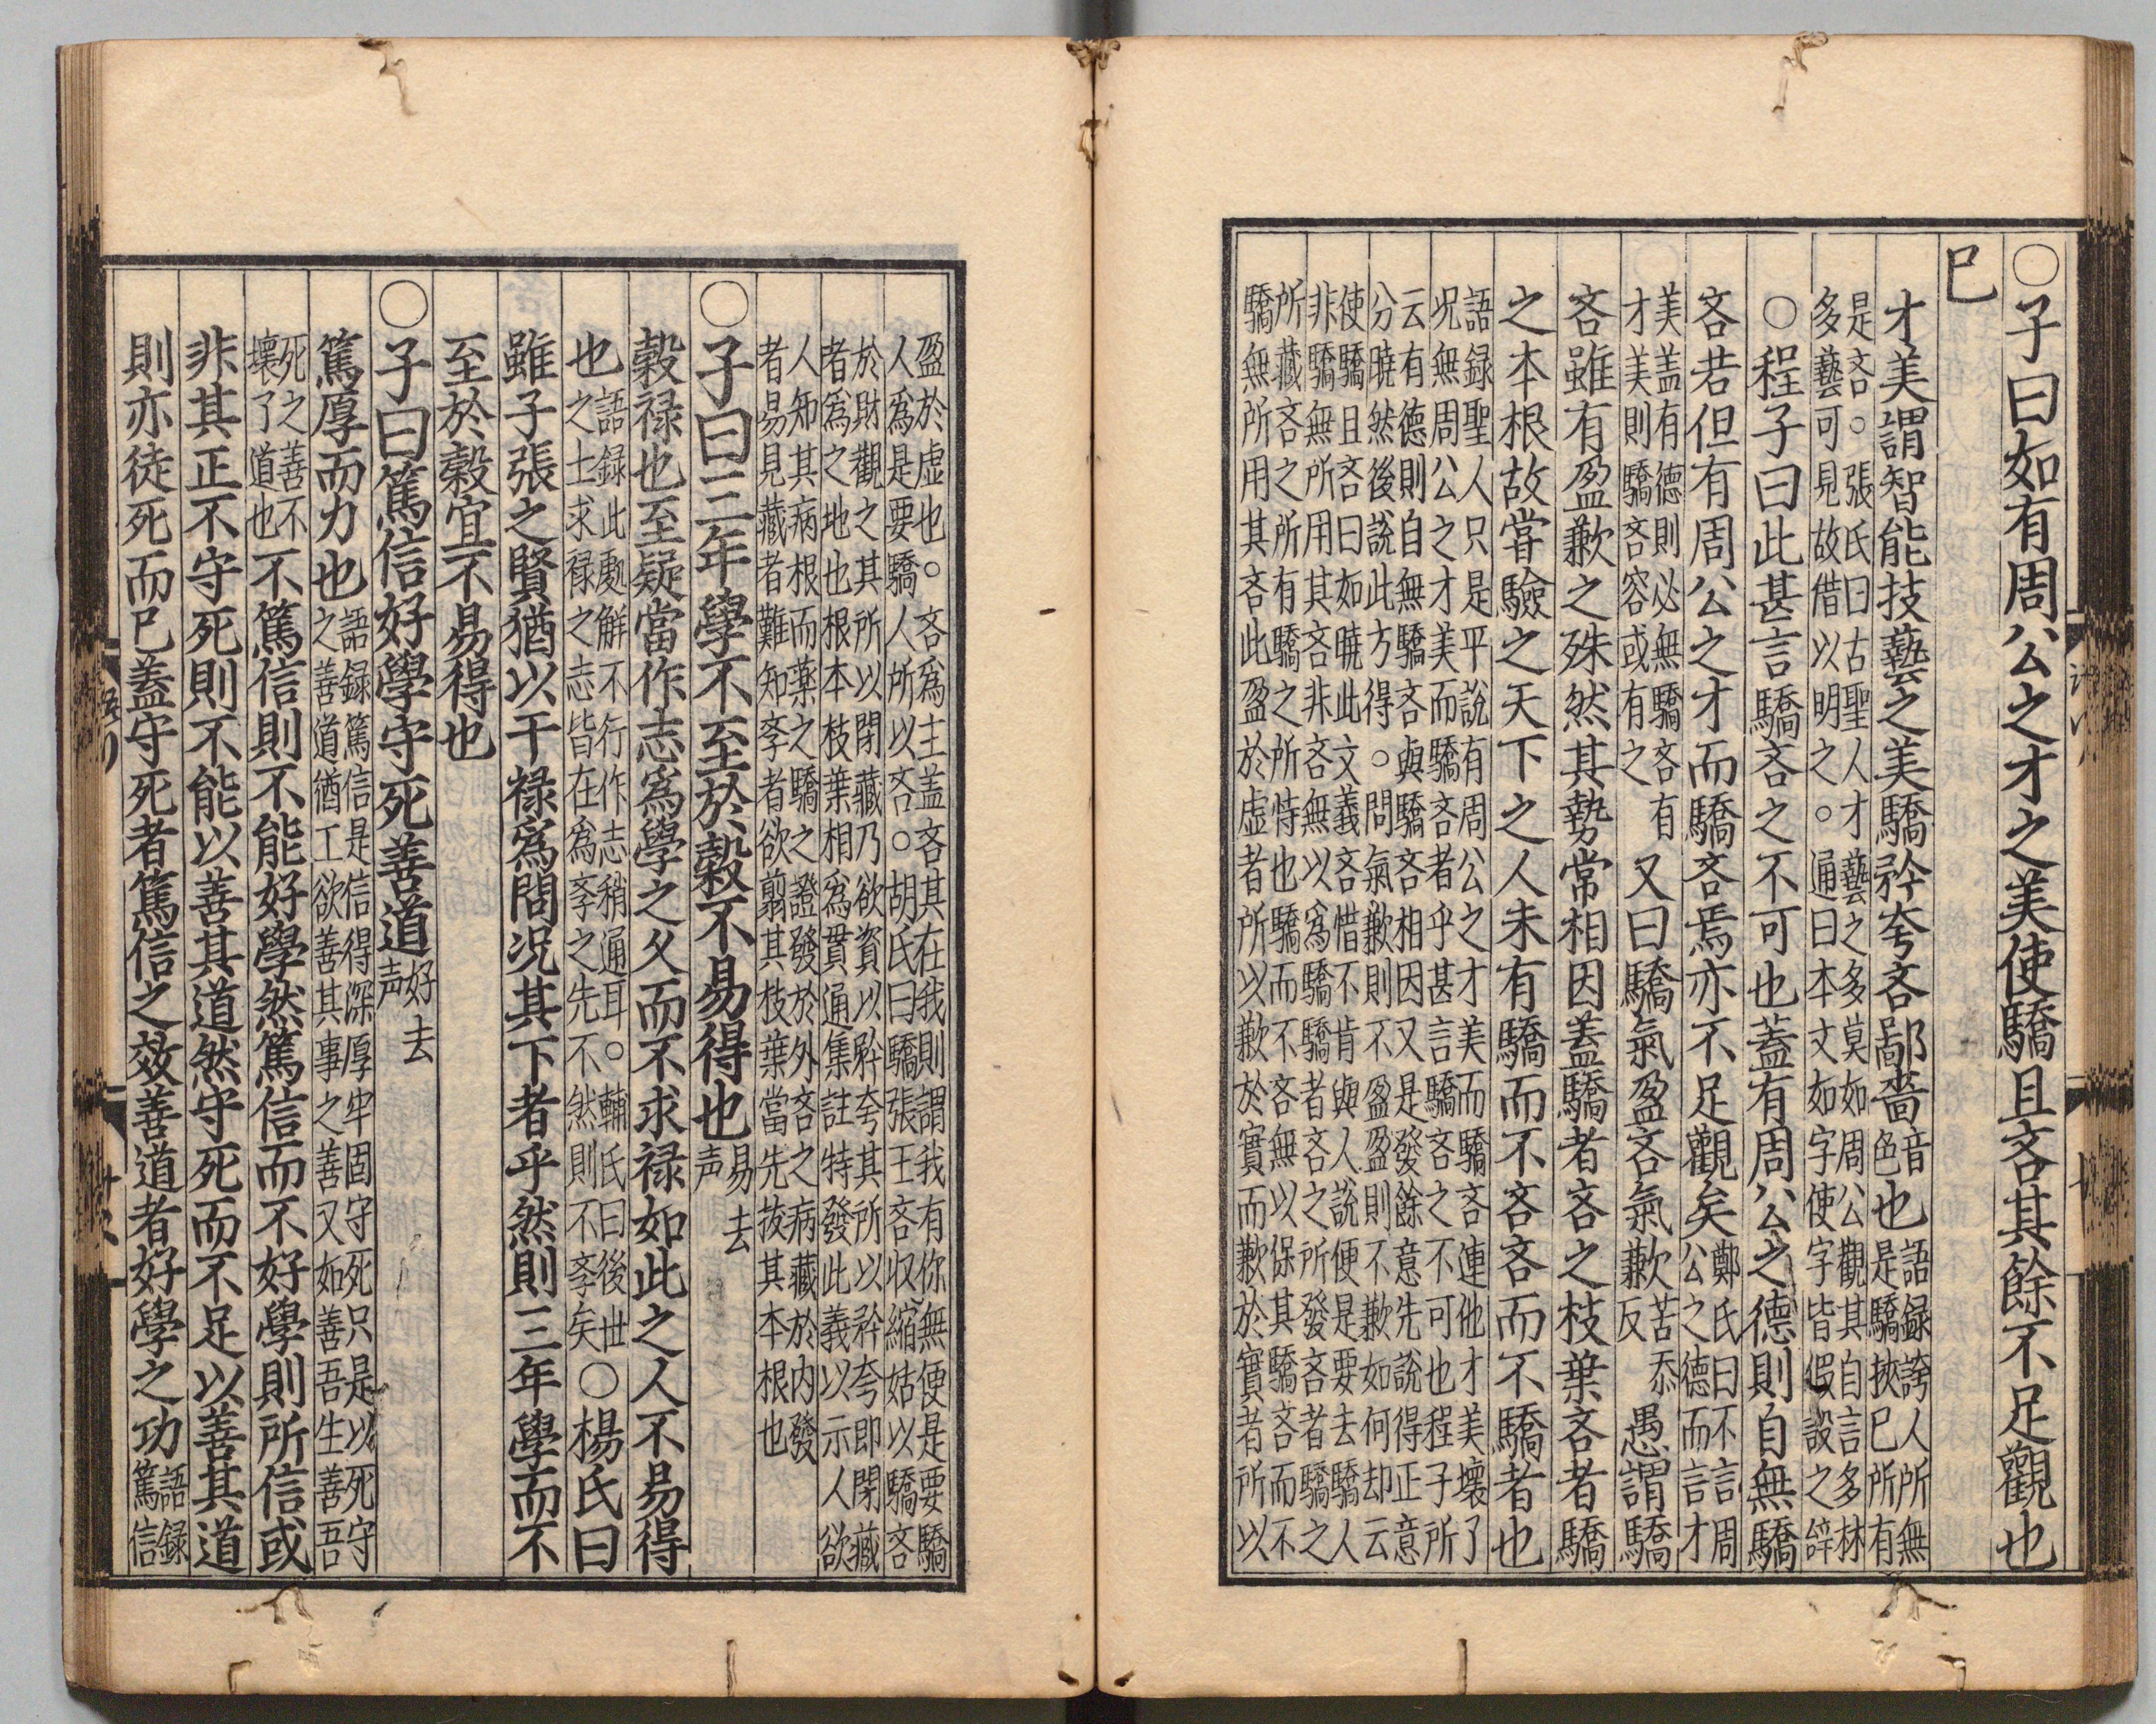 ○子曰如有周公之才之美使驕且吝其餘不足觀也
已
才美謂智能技藝之美驕矜夸吝鄙嗇音色也語録誇人所無是驕挾已所有
是吝○張氏曰古聖人才藝之多莫如周公觀其自言多林多藝可見故借以明之○通曰本文如字使字皆假設之辭
○程子曰此甚言驕吝之不可也蓋有周公之德則自無驕
吝若但有周公之才而驕吝焉亦不足觀矣鄭氏曰不言周公之德而言才
美蓋有德則必無驕吝有才美則驕吝容或有之又曰驕氣盈吝氣歉苦忝反愚謂驕
吝雖有盈歉之殊然其勢常相因蓋驕者吝之枝葉吝者驕
之本根故嘗驗之天下之人未有驕而不吝吝而不驕者也
語録聖人只是平説有周公之才美而驕吝連他才美壞了
况無周公之才美而驕吝者乎甚言驕吝之不可也程子所
云有德則自無驕吝與驕吝相因又是發餘意先説得正意
分曉然後説此方得○問氣歉則不盈盈則不歉如何却云
使驕且吝曰如曉此文義吝惜不肯與人説便是要去驕人
非驕無所用其吝非吝無以為驕驕者吝之所發吝者驕之
所藏吝之所有驕之所恃也驕而不吝無以保其驕吝而不
驕無所用其吝此盈於虚者所以歉於實而歉於實者所以
盈於虚也○吝為主蓋吝其在我則謂我有你無便是要驕
人為是要驕人所以吝○胡氏曰驕張王吝収縮姑以驕吝
於財觀之其所以閉藏乃欲資以矜夸其所以矜夸即閉藏
者為之地也根本枝葉相為貫通集註特發此義以示人欲
人知其病根而藥之驕之證發於外吝之病藏於内發
者易見藏者難知斈者欲翦其枝葉當先抜其本根也
○子曰三年學不至於榖不易得也易去声
榖禄也至疑當作志為學之乆而不求禄如此之人不易得
也語録此處解不行作志稍通耳○輔氏曰後世之士求禄之志皆在為斈之先不然則不斈矣○楊氏曰
雖子張之賢猶以干禄為問况其下者乎然則三年學而不
至於榖宜不易得也
○子曰篤信好學守死善道好去声
篤厚而力也語録篤信是信得深厚牢固守死只是以死守之善道猶工欲善其事之善又如善吾生善吾
死之善不壞了道也不篤信則不能好學然篤信而不好學則所信或
非其正不守死則不能以善其道然守死而不足以善其道
則亦徒死而已蓋守死者篤信之效善道者好學之功語録篤信